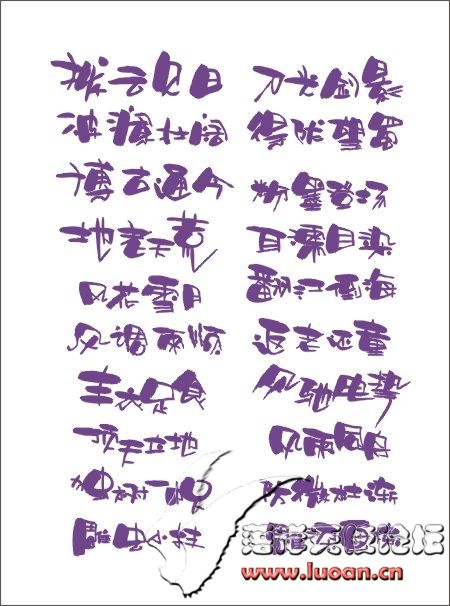 拨云见日 刀光剑影
波澜壮阔 得陇望蜀
博古通今 粉墨登场
地老天荒 耳濡目染
风花雪月 翻江倒海
风调雨顺 返老还童
丰衣足食 风驰电掣
顶天立地 风雨同舟
独树一帜 防微杜渐
雕虫小技
论坛
www.luoan.cn